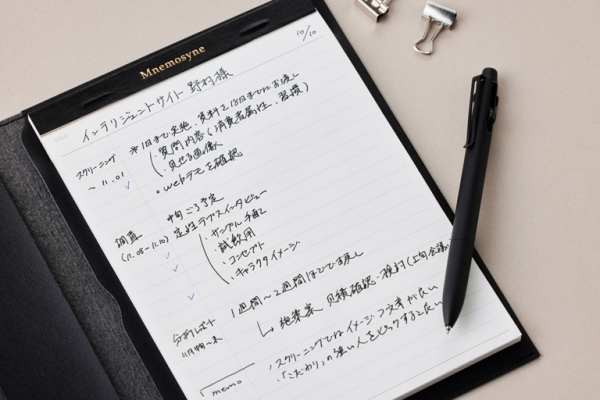 Mnemosyne
10/10
インテリジェントサイト 野村様
スクリーニング
〜11.01
※1日まで実施、資料を18日までにお渡し
・質問内容(消費者属性、習慣)
・見せる画像
・webデモを確認
調査
(11.08-11.10)
中旬ごろ予定
定性デプスインタビュー
・サンプル手配
・試飲用
・コンセプト
・キャラクタイメージ
分析レポート
11月
1週間〜2週間ほどでお渡し
↳ 施策案、見積確認・検討(上旬会議
memo
・スクリーニングではイメージつく文章が良い
・「こだわり」の強い人をピックすると良い